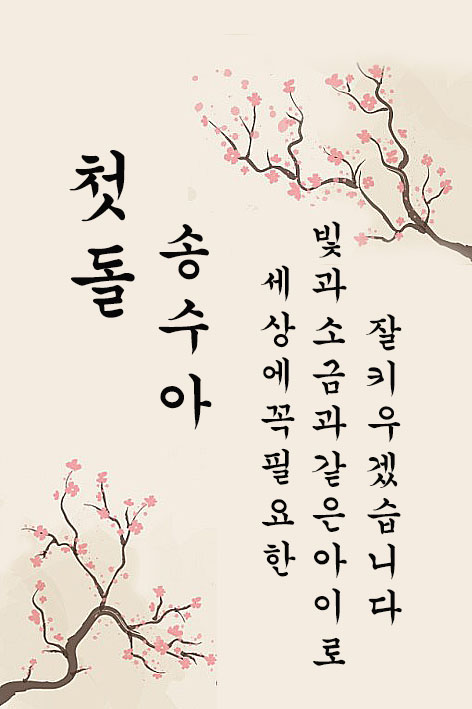 첫돌
송수아
세상에꼭필요한
빛과소금과같은아이로
잘키우겠습니다